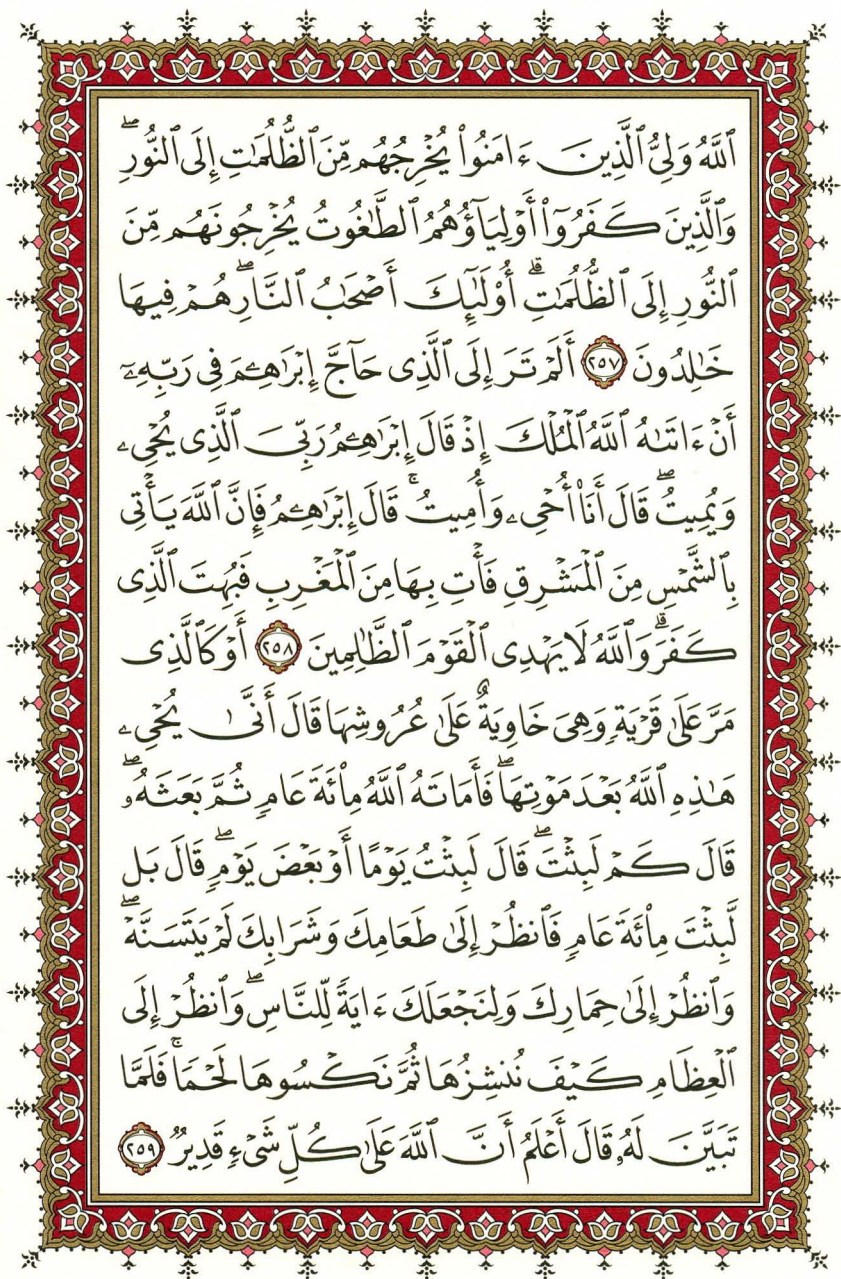 ٱللَّهُ وَلِيُّ ٱلَّذِينَ ءَامَنُوا۟ يُخْرِجُهُم مِّنَ ٱلظُّلُمَٰتِ إِلَى ٱلنُّورِ ۖ
وَٱلَّذِينَ كَفَرُوٓا۟ أَوْلِيَآؤُهُمُ ٱلطَّٰغُوتُ يُخْرِجُونَهُم مِّنَ
ٱلنُّورِ إِلَى ٱلظُّلُمَٰتِ ۗ أُو۟لَٰٓئِكَ أَصْحَٰبُ ٱلنَّارِ ۖ هُمْ فِيهَا
خَٰلِدُونَ ٢٥٧ أَلَمْ تَرَ إِلَى ٱلَّذِى حَآجَّ إِبْرَٰهِـۧمَ فِى رَبِّهِۦٓ
أَنْ ءَاتَىٰهُ ٱللَّهُ ٱلْمُلْكَ إِذْ قَالَ إِبْرَٰهِـۧمُ رَبِّىَ ٱلَّذِى يُحْىِۦ
وَيُمِيتُ ۖ قَالَ أَنَا۠ أُحْىِۦ وَأُمِيتُ ۚ قَالَ إِبْرَٰهِـۧمُ فَإِنَّ ٱللَّهَ يَأْتِى
بِٱلشَّمْسِ مِنَ ٱلْمَشْرِقِ فَأْتِ بِهَا مِنَ ٱلْمَغْرِبِ فَبُهِتَ ٱلَّذِى
كَفَرَ ۗ وَٱللَّهُ لَا يَهْدِى ٱلْقَوْمَ ٱلظَّٰلِمِينَ ٢٥٨ أَوْ كَٱلَّذِى
مَرَّ عَلَىٰ قَرْيَةٍ وَهِىَ خَاوِيَةٌ عَلَىٰ عُرُوشِهَا قَالَ أَنَّىٰ يُحْىِۦ
هَٰذِهِ ٱللَّهُ بَعْدَ مَوْتِهَا ۖ فَأَمَاتَهُ ٱللَّهُ مِا۟ئَةَ عَامٍ ثُمَّ بَعَثَهُۥ ۖ
قَالَ كَمْ لَبِثْتَ ۖ قَالَ لَبِثْتُ يَوْمًا أَوْ بَعْضَ يَوْمٍ ۖ قَالَ بَل
لَّبِثْتَ مِا۟ئَةَ عَامٍ فَٱنظُرْ إِلَىٰ طَعَامِكَ وَشَرَابِكَ لَمْ يَتَسَنَّهْ ۖ
وَٱنظُرْ إِلَىٰ حِمَارِكَ وَلِنَجْعَلَكَ ءَايَةً لِّلنَّاسِ ۖ وَٱنظُرْ إِلَى
ٱلْعِظَامِ كَيْفَ نُنشِزُهَا ثُمَّ نَكْسُوهَا لَحْمًا ۚ فَلَمَّا
تَبَيَّنَ لَهُۥ قَالَ أَعْلَمُ أَنَّ ٱللَّهَ عَلَىٰ كُلِّ شَىْءٍ قَدِيرٌ ٢٥٩